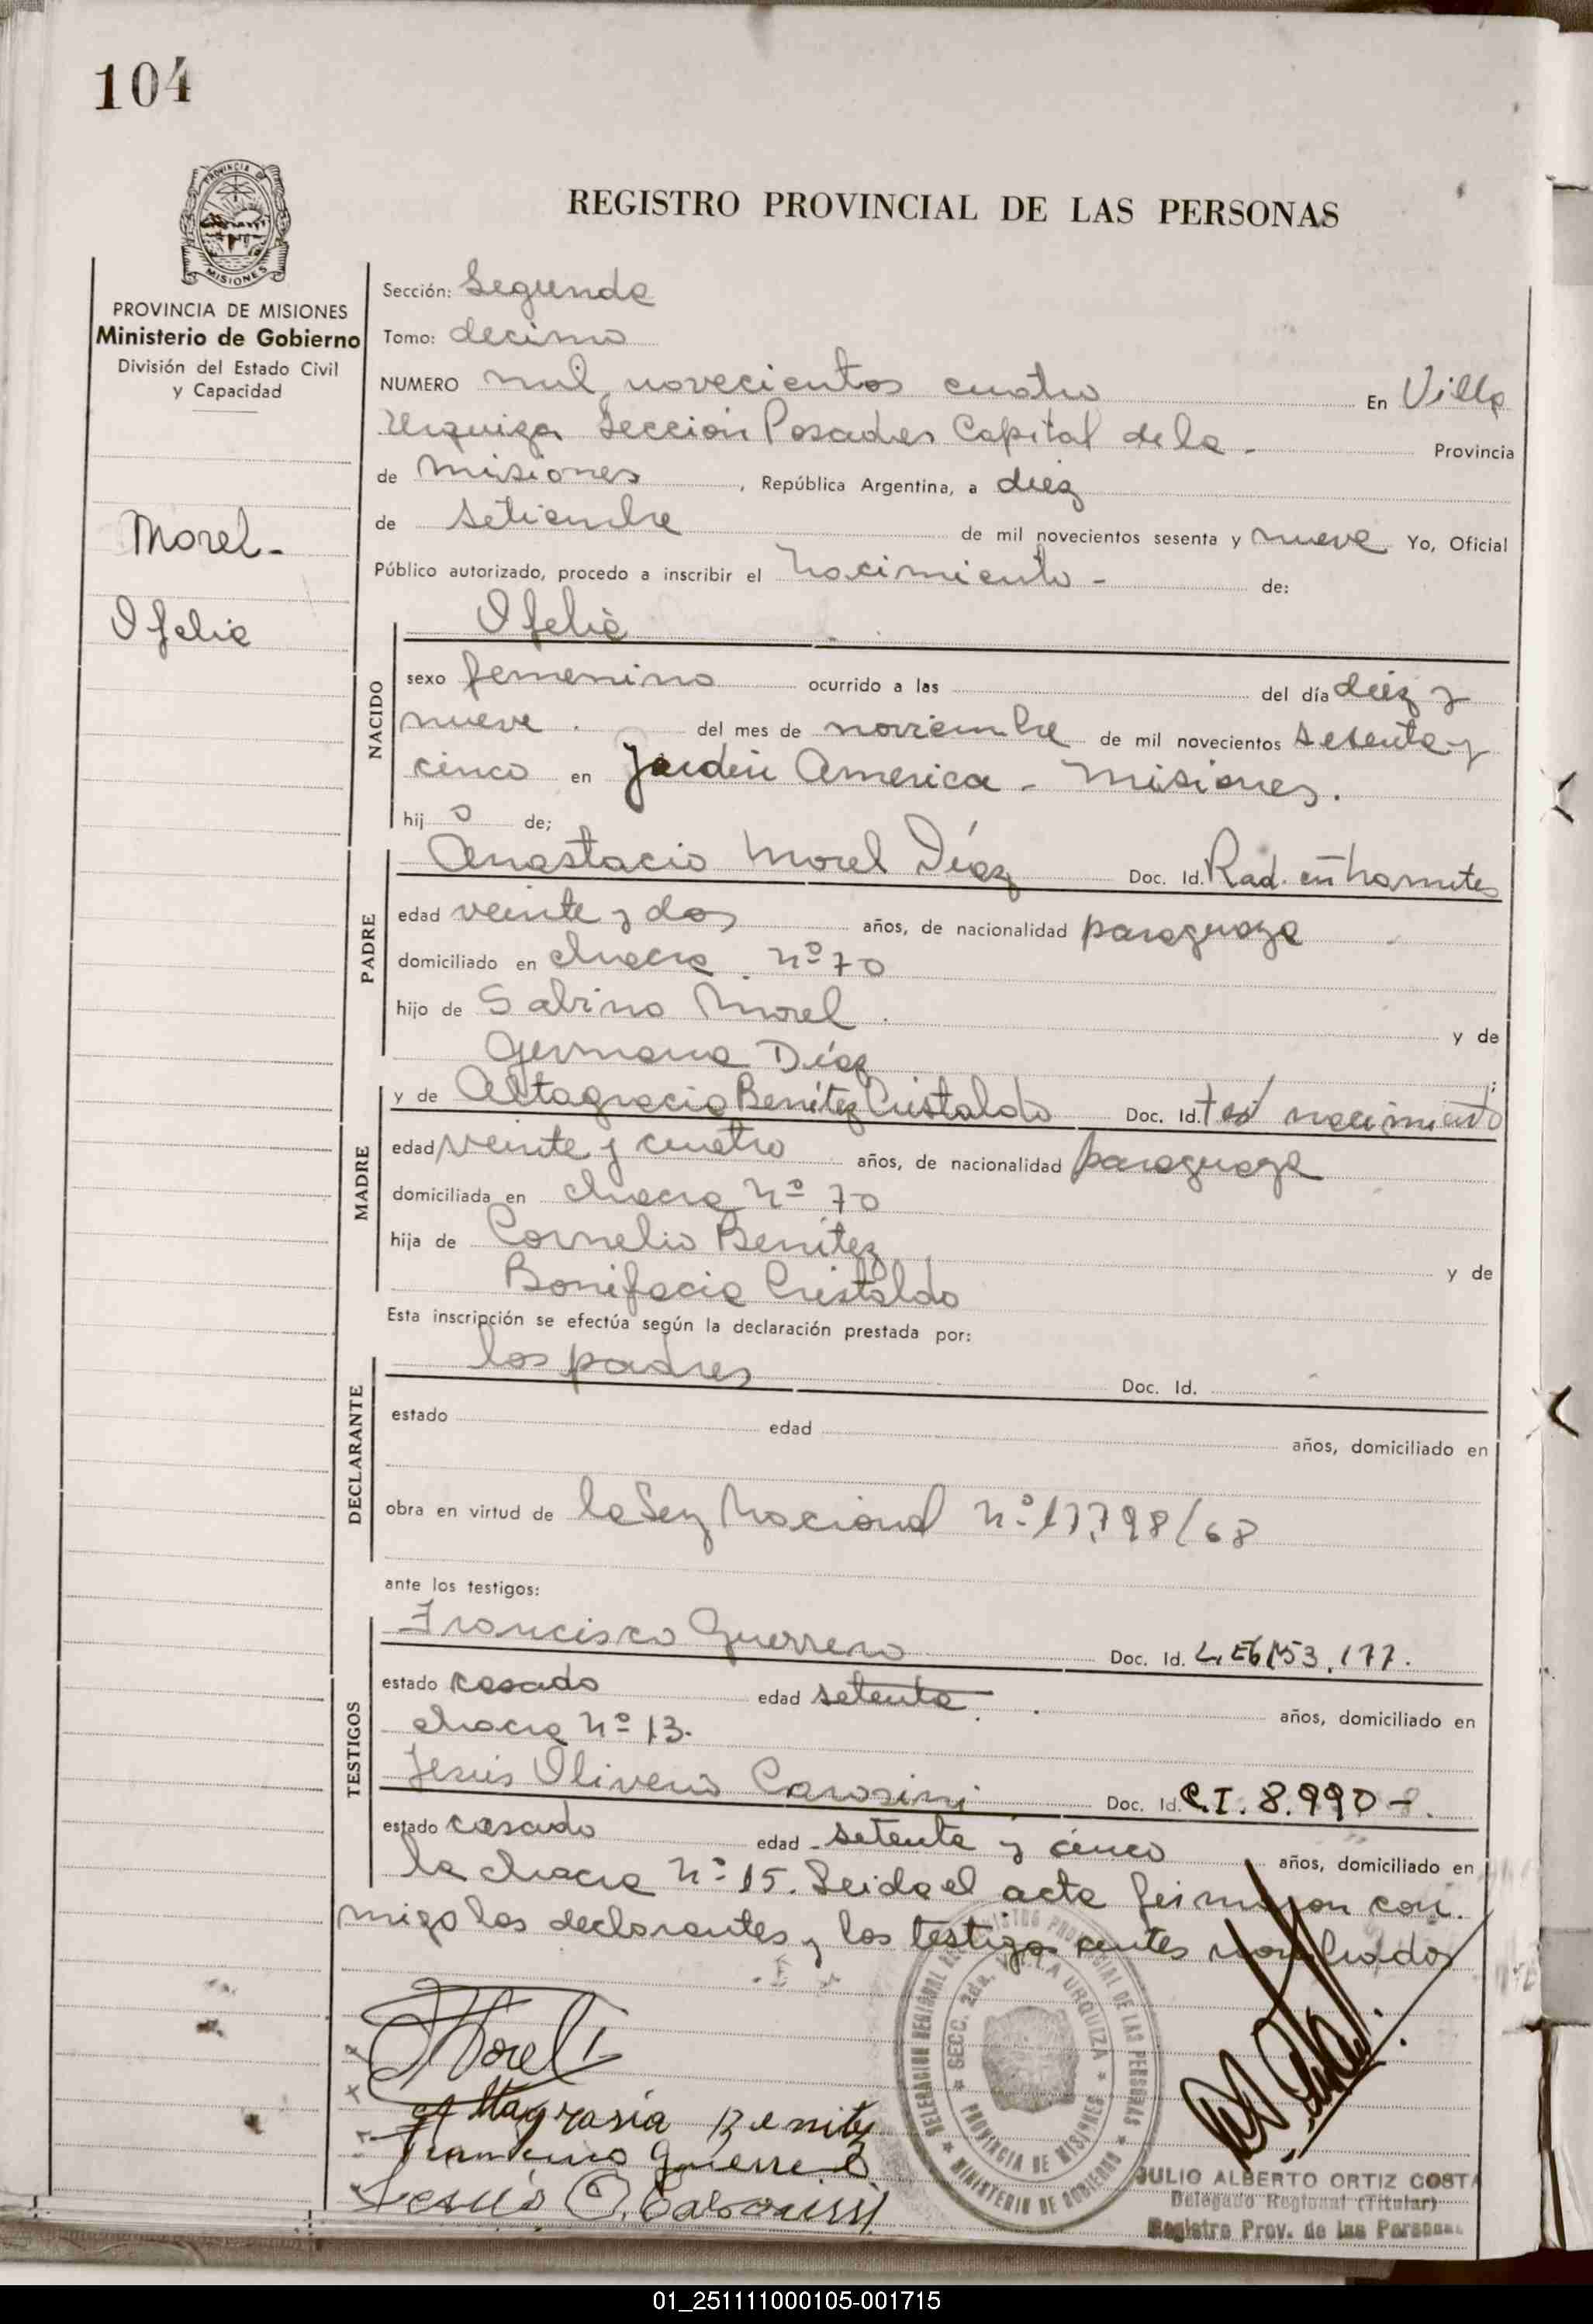 104
PROVINCIA DE
MISIONES
REGISTRO PROVINCIAL DE LAS PERSONAS
PROVINCIA DE MISIONES
Ministerio de Gobierno
División del Estado Civil
y Capacidad
Morel-
Ofelia
Sección: Segunda
Tomo: decimo
NUMERO mil novecientos cuatro En Villa
Urquiza Sección Posadas Capital de la - Provincia
de Misiones, República Argentina, a diez
de setiembre de mil novecientos sesenta y nueve Yo, Oficial
Público autorizado, procedo a inscribir el Nacimiento - de:
Ofelia
NACIDO
sexo femenino ocurrido a las del día diez y
nueve del mes de noviembre de mil novecientos sesenta y
cinco en Jardín America - Misiones.
hij o de;
PADRE
Anastacio Morel Díaz Doc. Id. Rad. en tramites
edad veinte y dos años, de nacionalidad paraguaya
domiciliado en chacra nº 70
hijo de Sabino Morel y de
Germana Díaz ;
MADRE
y de Altagracia Benítez Cristaldo Doc. Id. nacimiento
edad veinte y cuatro años, de nacionalidad paraguaya
domiciliada en chacra nº 70
hija de Cornelio Benítez y de
Bonifacia Cristaldo
Esta inscripción se efectúa según la declaración prestada por:
DECLARANTE
los padres Doc. Id.
estado edad años, domiciliado en
obra en virtud de la Ley Nacional nº 17,798/68
ante los testigos:
TESTIGOS
Francisco Guerrero Doc. Id. 153.177.
estado casado edad setenta años, domiciliado en
chacra nº 13.
Jesús Oliverio Carosini Doc. Id. C.I. 8.990
estado casado edad setenta y cinco años, domiciliado en
la chacra nº 15. Leida el acta firmaron con.
migo los declarantes y los testigos antes nombrados
Morel
Altagrasia Benitez
Francisco Guerrero
Jesús O. Carosini
SECC. 2da. VILLA URQUIZA
PROVINCIA DE MISIONES
MINISTERIO DE GOBIERNO
DELEGACION REGIONAL REGISTRO PROVINCIAL DE LAS PERSONAS
JULIO ALBERTO ORTIZ COSTA
Delegado Regional (Titular)
Registro Prov. de las Personas
01_251111000105-001715